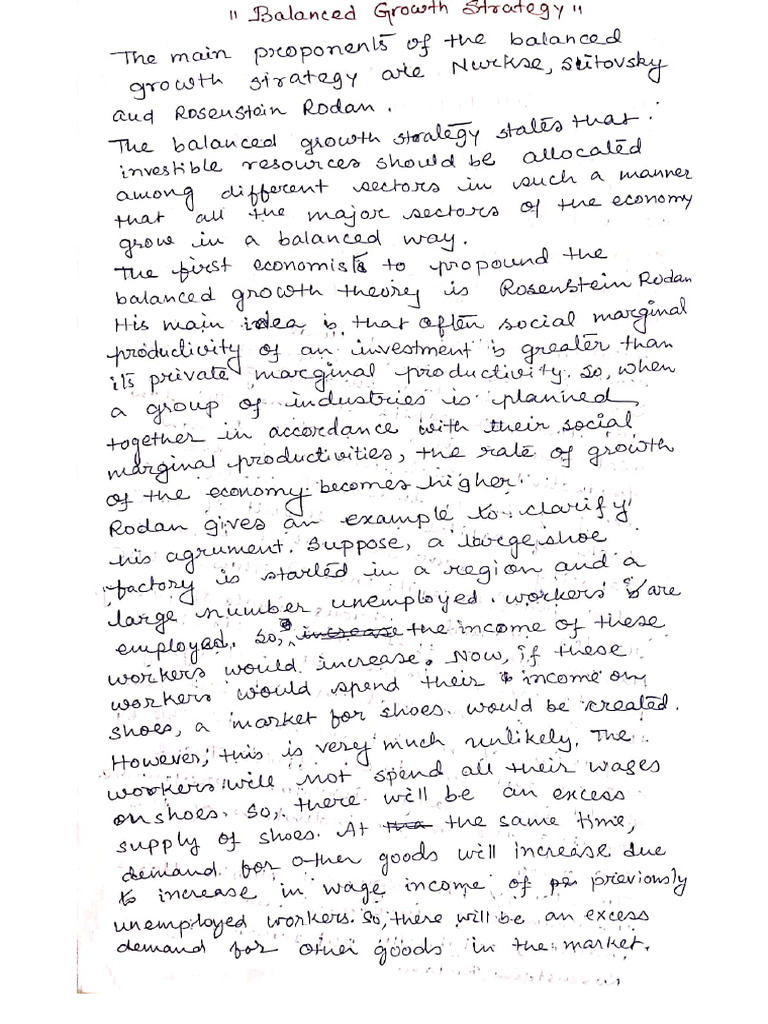 "Balanced Growth Strategy"
The main proponents of the balanced
growth strategy are Nurkse, Scitovsky
and Rosenstein Rodan.
The balanced growth strategy states that
investible resources should be allocated
among different sectors in such a manner
that all the major sectors of the economy
grow in a balanced way.
The first economists to propound the
balanced growth theory is Rosenstein Rodan
His main idea is that often social marginal
productivity of an investment is greater than
its private marginal productivity. So, when
a group of industries is planned
together in accordance with their social
marginal productivities, the rate of growth
of the economy becomes higher.
Rodan gives an example to clarify
his agrument. Suppose, a large shoe
factory is started in a region and a
large number unemployed workers are
employed. So, the income of these
workers would increase. Now, if these
workers would spend their income on
shoes, a market for shoes would be created.
However, this is very much unlikely. The
workers will not spend all their wages
on shoes. So, there will be an excess
supply of shoes. At the same time,
demand for other goods will increase due
to increase in wage income of previously
unemployed workers. So, there will be an excess
demand for other goods in the market.